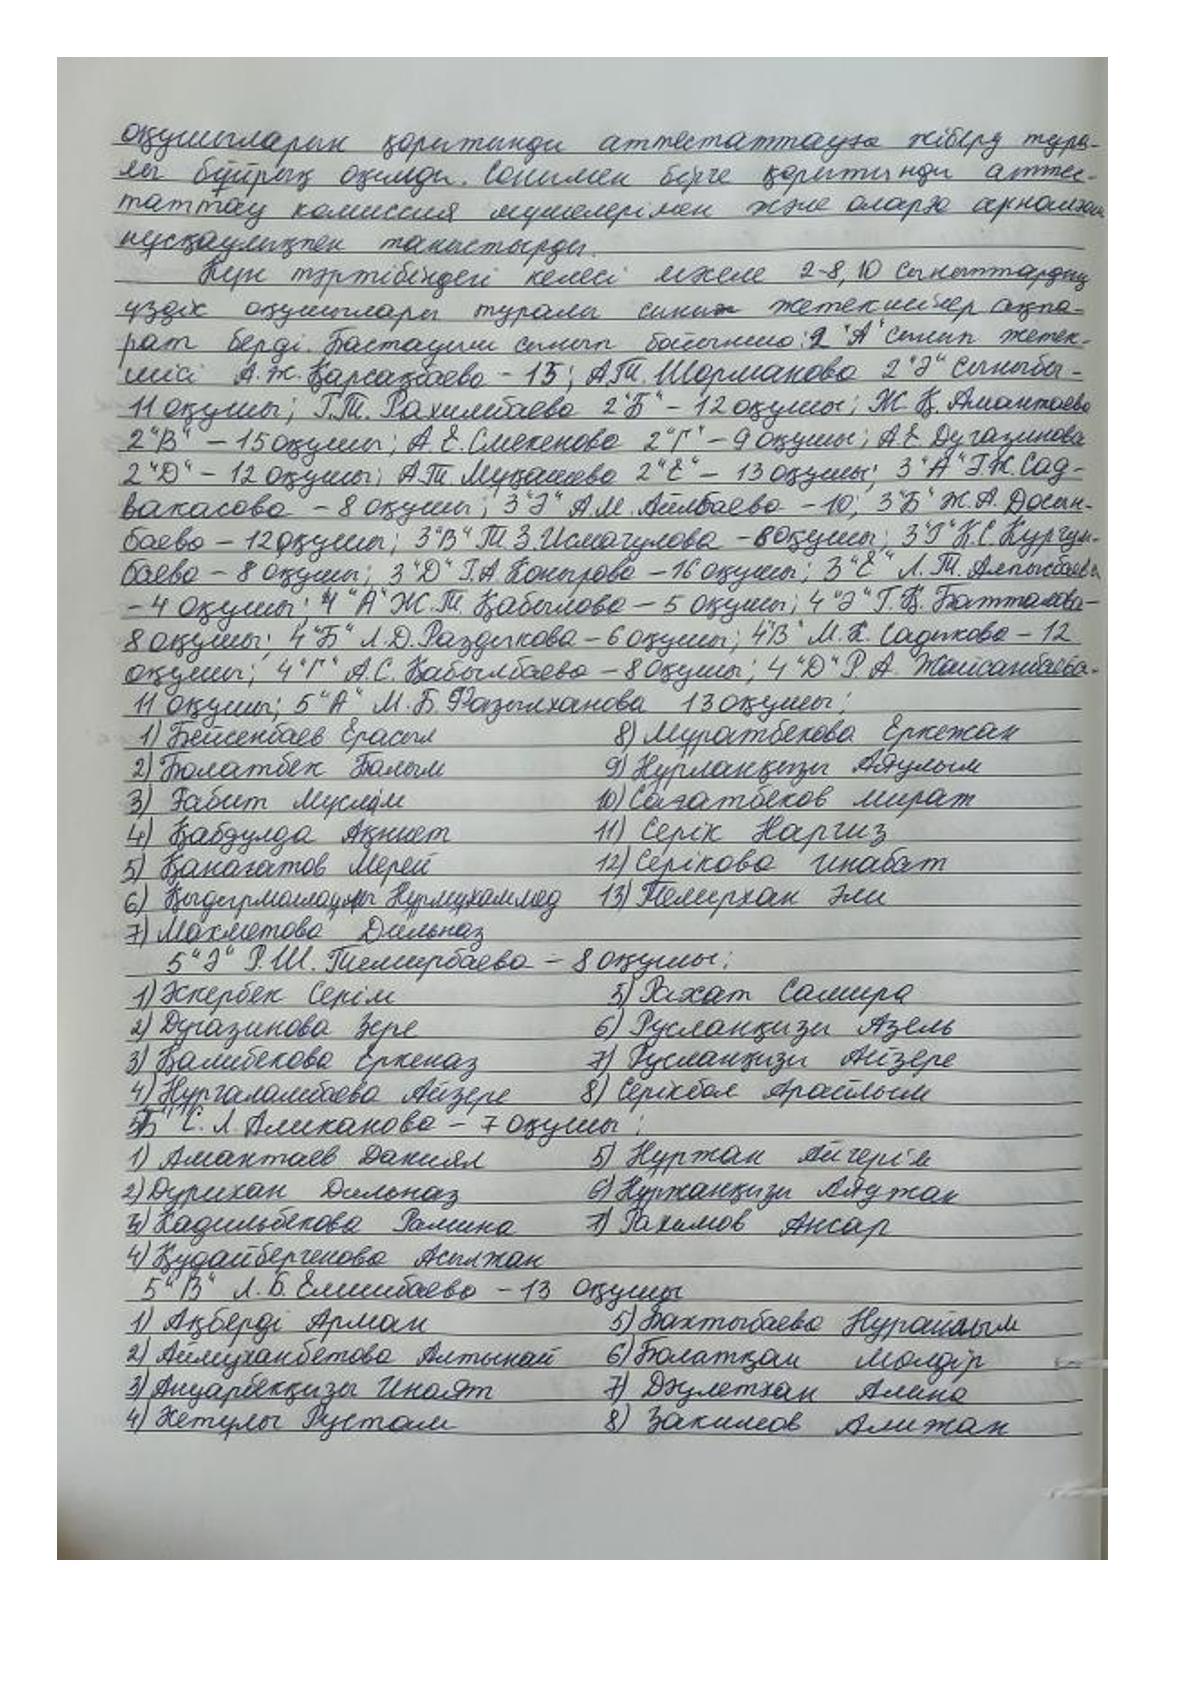 оқушыларын қорытынды аттестаттауға жіберу тура-
лы бұйрық оқылды. Сонымен бірге қорытынды аттес-
таттау комиссия мүшелерімен және оларға арналған
нұсқаулықпен таныстырды.
Күн тәртібіндегі келесі мәселе 2-8,10 сыныптардың
үздік оқушылары туралы сынып жетекшілер ақпа-
рат берді. Бастауыш сынып бойынша: 2 "А" сынып жетек-
шісі А.Ж. Қарсақбаева - 15; А.Т. Шорманова 2 "Ә" сыныбы -
11 оқушы; Г.Т. Рахимбаева 2 "Б" - 12 оқушы; Ж.Қ. Амантаева
2 "В" - 15 оқушы; А.Е. Смекенова 2 "Г" - 9 оқушы; А.Е. Дугазинова
2 "Д" - 12 оқушы; А.Т. Муқашева 2 "Е" - 13 оқушы; 3 "А" Г.К. Сад-
вакасова - 8 оқушы; 3 "Ә" А.М. Айлбаева - 10; 3 "Б" Ж.А. Досын-
баева - 12 оқушы; 3 "В" Т.З. Исмагулова - 8 оқушы; 3 "Г" К.С. Кургум-
баева - 8 оқушы; 3 "Д" Г.А. Конырова - 16 оқушы; 3 "Е" Л.Т. Алпысбаева
- 4 оқушы; 4 "А" Ж.Т. Қабылова - 5 оқушы; 4 "Ә" Г.Қ. Батталова -
8 оқушы; 4 "Б" Л.Д. Раздыкова - 6 оқушы; 4 "В" М.К. Садыкова - 12
оқушы; 4 "Г" А.С. Қабылбаева - 8 оқушы; 4 "Д" Р.А. Жайсанбаева -
11 оқушы; 5 "А" М.Б. Фазылханова 13 оқушы;
1) Бейсенбаев Ерасыл 8) Муратбекова Еркежан
2) Болатбек Балым 9) Нұрланқызы Аяулым
3) Ғабит Муслім 10) Сағатбеков Мират
4) Қабдулда Ақниет 11) Серік Наргиз
5) Қанағатов Мерей 12) Серікова Инабат
6) Қыдырмоллаұлы Нурмухаммед 13) Темирхан Әли
7) Махметова Дильназ
5 "Ә" Р.Ш. Темирбаева - 8 оқушы;
1) Әскербек Серім 5) Рахат Самира
2) Дугазинова Зере 6) Русланқызы Азель
3) Қалибекова Еркеназ 7) Русланқызы Айзере
4) Нургаламбаева Айзере 8) Серікбол Арайлым
5 "Б" С.Л. Алиханова - 7 оқушы;
1) Амантаев Даниял 5) Нұржан Айгерім
2) Дурихан Дильназ 6) Нұржанқызы Аяужан
3) Кадильбекова Рамина 7) Рахимов Ансар
4) Құдайбергенова Асылжан
5 "В" Л.Б. Елшибаева - 13 оқушы
1) Ақберді Арман 5) Бахтыбаева Нурайлым
2) Аймұханбетова Алтынай 6) Болатқан Мөлдір
3) Ануарбекқызы Инаят 7) Дәулетхан Алина
4) Жетулы Рустам 8) Закимов Алижан